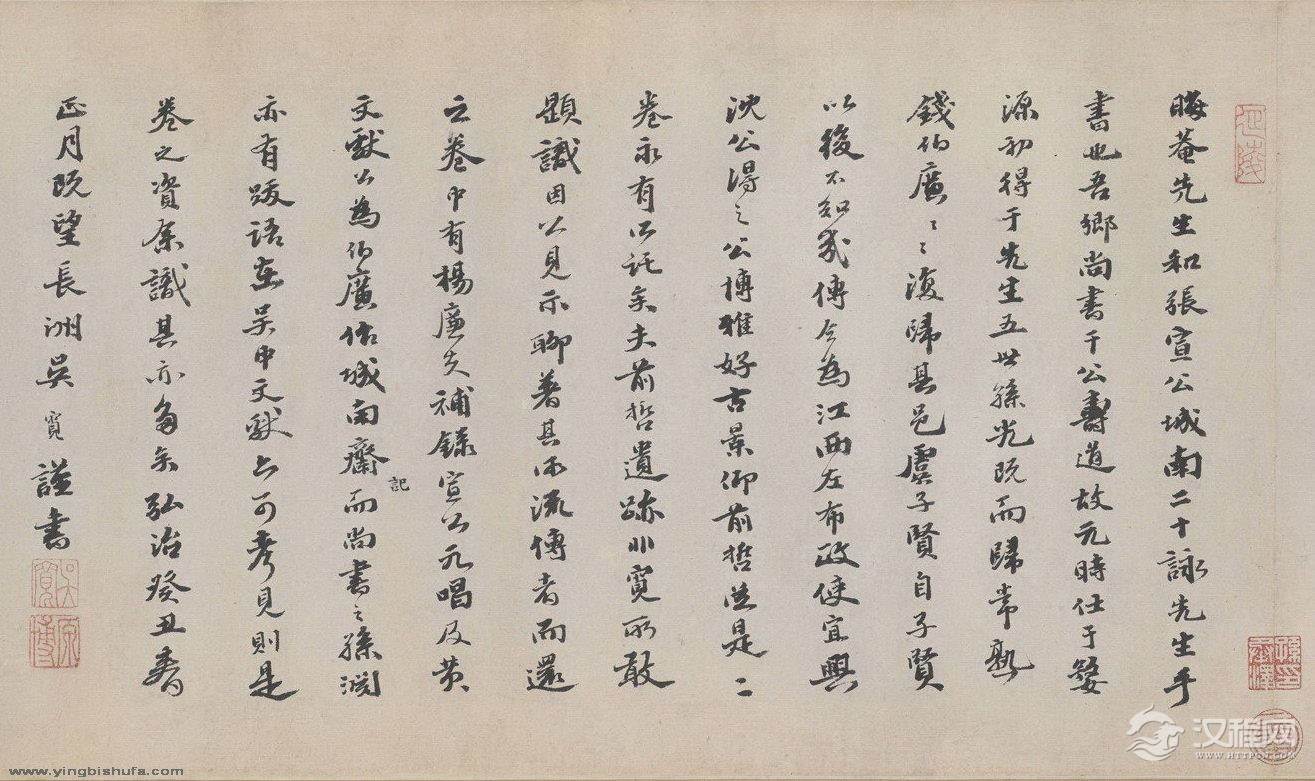 晦菴先生和張宣公城南二十詠先生手
書也吾鄉尚書干公壽道故元時仕于婺
源初得于先生五世孫光既而歸常熟
錢伯廣〻〻復歸其邑虞子賢自子賢
以後不知幾傳今為江西左布政使宜興
沈公得之公博雅好古景仰前哲澁是二
卷永有所託矣夫前哲遺跡非寬所敢
題識因以見示聊著其所流傳者而還
之卷中有楊廉夫補錄宣公元唱及黄
文獻公為伯廣作城南齋記而尚書之孫淵
亦有跋語在吴中文獻亦可考見則是
卷之資余識其亦多矣弘治癸丑春
正月既望長洲吴寬謹書
延陵
吴寬
原博
汉程网
WWW.HTTPCN.COM
www.yingbishufa.com